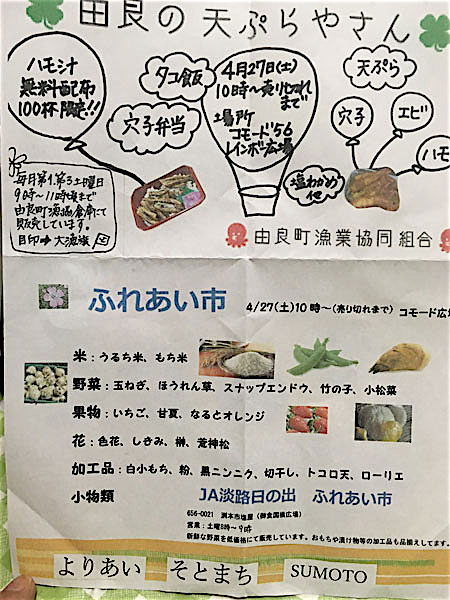 由良の天ぷらやさん
ハモ汁
無料配布
100杯限定!!
タコ飯
穴子弁当
4月27日(土)
10時〜売り切れまで
場所
コモード'56
レインボー広場
天ぷら
穴子
エビ
ハモ
塩わかめ
他
毎月第1.第3土曜日
9時〜11時頃まで
由良町漁協倉庫にて
販売しています。
目印⇒大漁旗
由良町漁業協同組合
ふれあい市
4/27(土)10時〜(売り切れまで) コモード広場
米:うるち米、もち米
野菜:玉ねぎ、ほうれん草、スナップエンドウ、竹の子、小松菜
果物:いちご、甘夏、なるとオレンジ
花:色花、しきみ、榊、荒神松
加工品:白小もち、粉、黒ニンニク、切干し、トコロ天、ローリエ
小物類
JA淡路日の出 ふれあい市
656-0021 洲本市塩屋(御食国横広場)
営業:土曜8時〜9時
新鮮な野菜を低価格にて販売しています。おもちや漬け物等の加工品も品揃えしてます。
よりあい そとまち SUMOTO